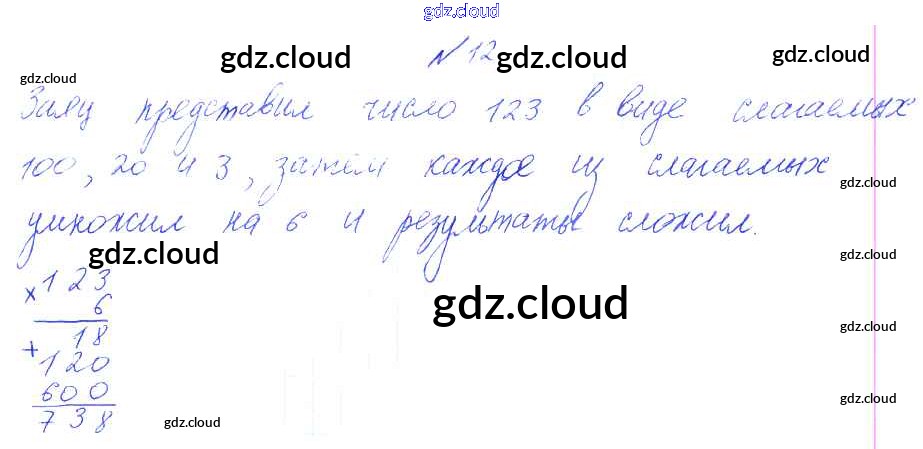 gdz.cloud
gdz.cloud № 12 gdz.cloud gdz.cloud
gdz.cloud
Заяц представил число 123 в виде слагаемых
100, 20 и 3, затем каждое из слагаемых
gdz.cloud
умножил на 6 и результаты сложил.
gdz.cloud gdz.cloud
× 123
6
gdz.cloud
+ 18
gdz.cloud
120
600
gdz.cloud
738
gdz.cloud